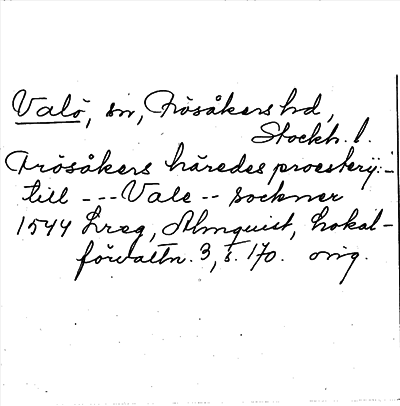 Valö, sn, Frösåkers hd,
Stockh. l.
Frösåkers häredes proestery: -
till --- Vale -- sockner
1544 Lreg, Almquist, Lokal-
förvaltn. 3, s. 170. orig.